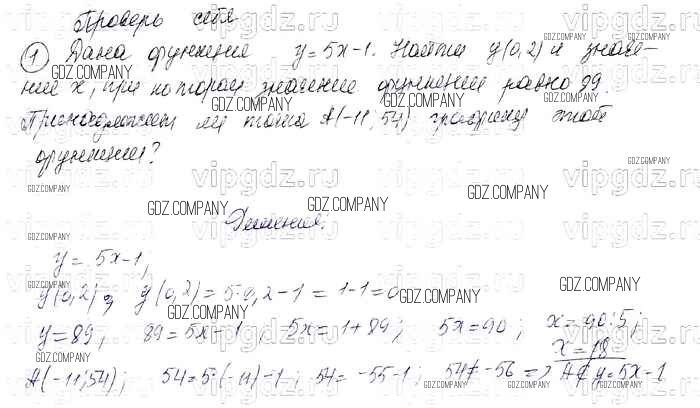 Проверь себя
① Дана функция y=5x-1. Найти y(0,2) и значе-
ние x, при котором значение функции равно 89.
Принадлежит ли точка A(-11; 54) графику этой
функции?
Решение:
y = 5x-1;
y(0,2) = y(0,2) = 5·0,2-1 = 1-1=0
y=89, 89=5x-1; 5x=1+89; 5x=90; x=90:5;
x=18
A(-11;54); 54=5·(-11)-1; 54= -55-1; 54≠-56 => A∉y=5x-1
GDZ.COMPANY
vipgdz.ru